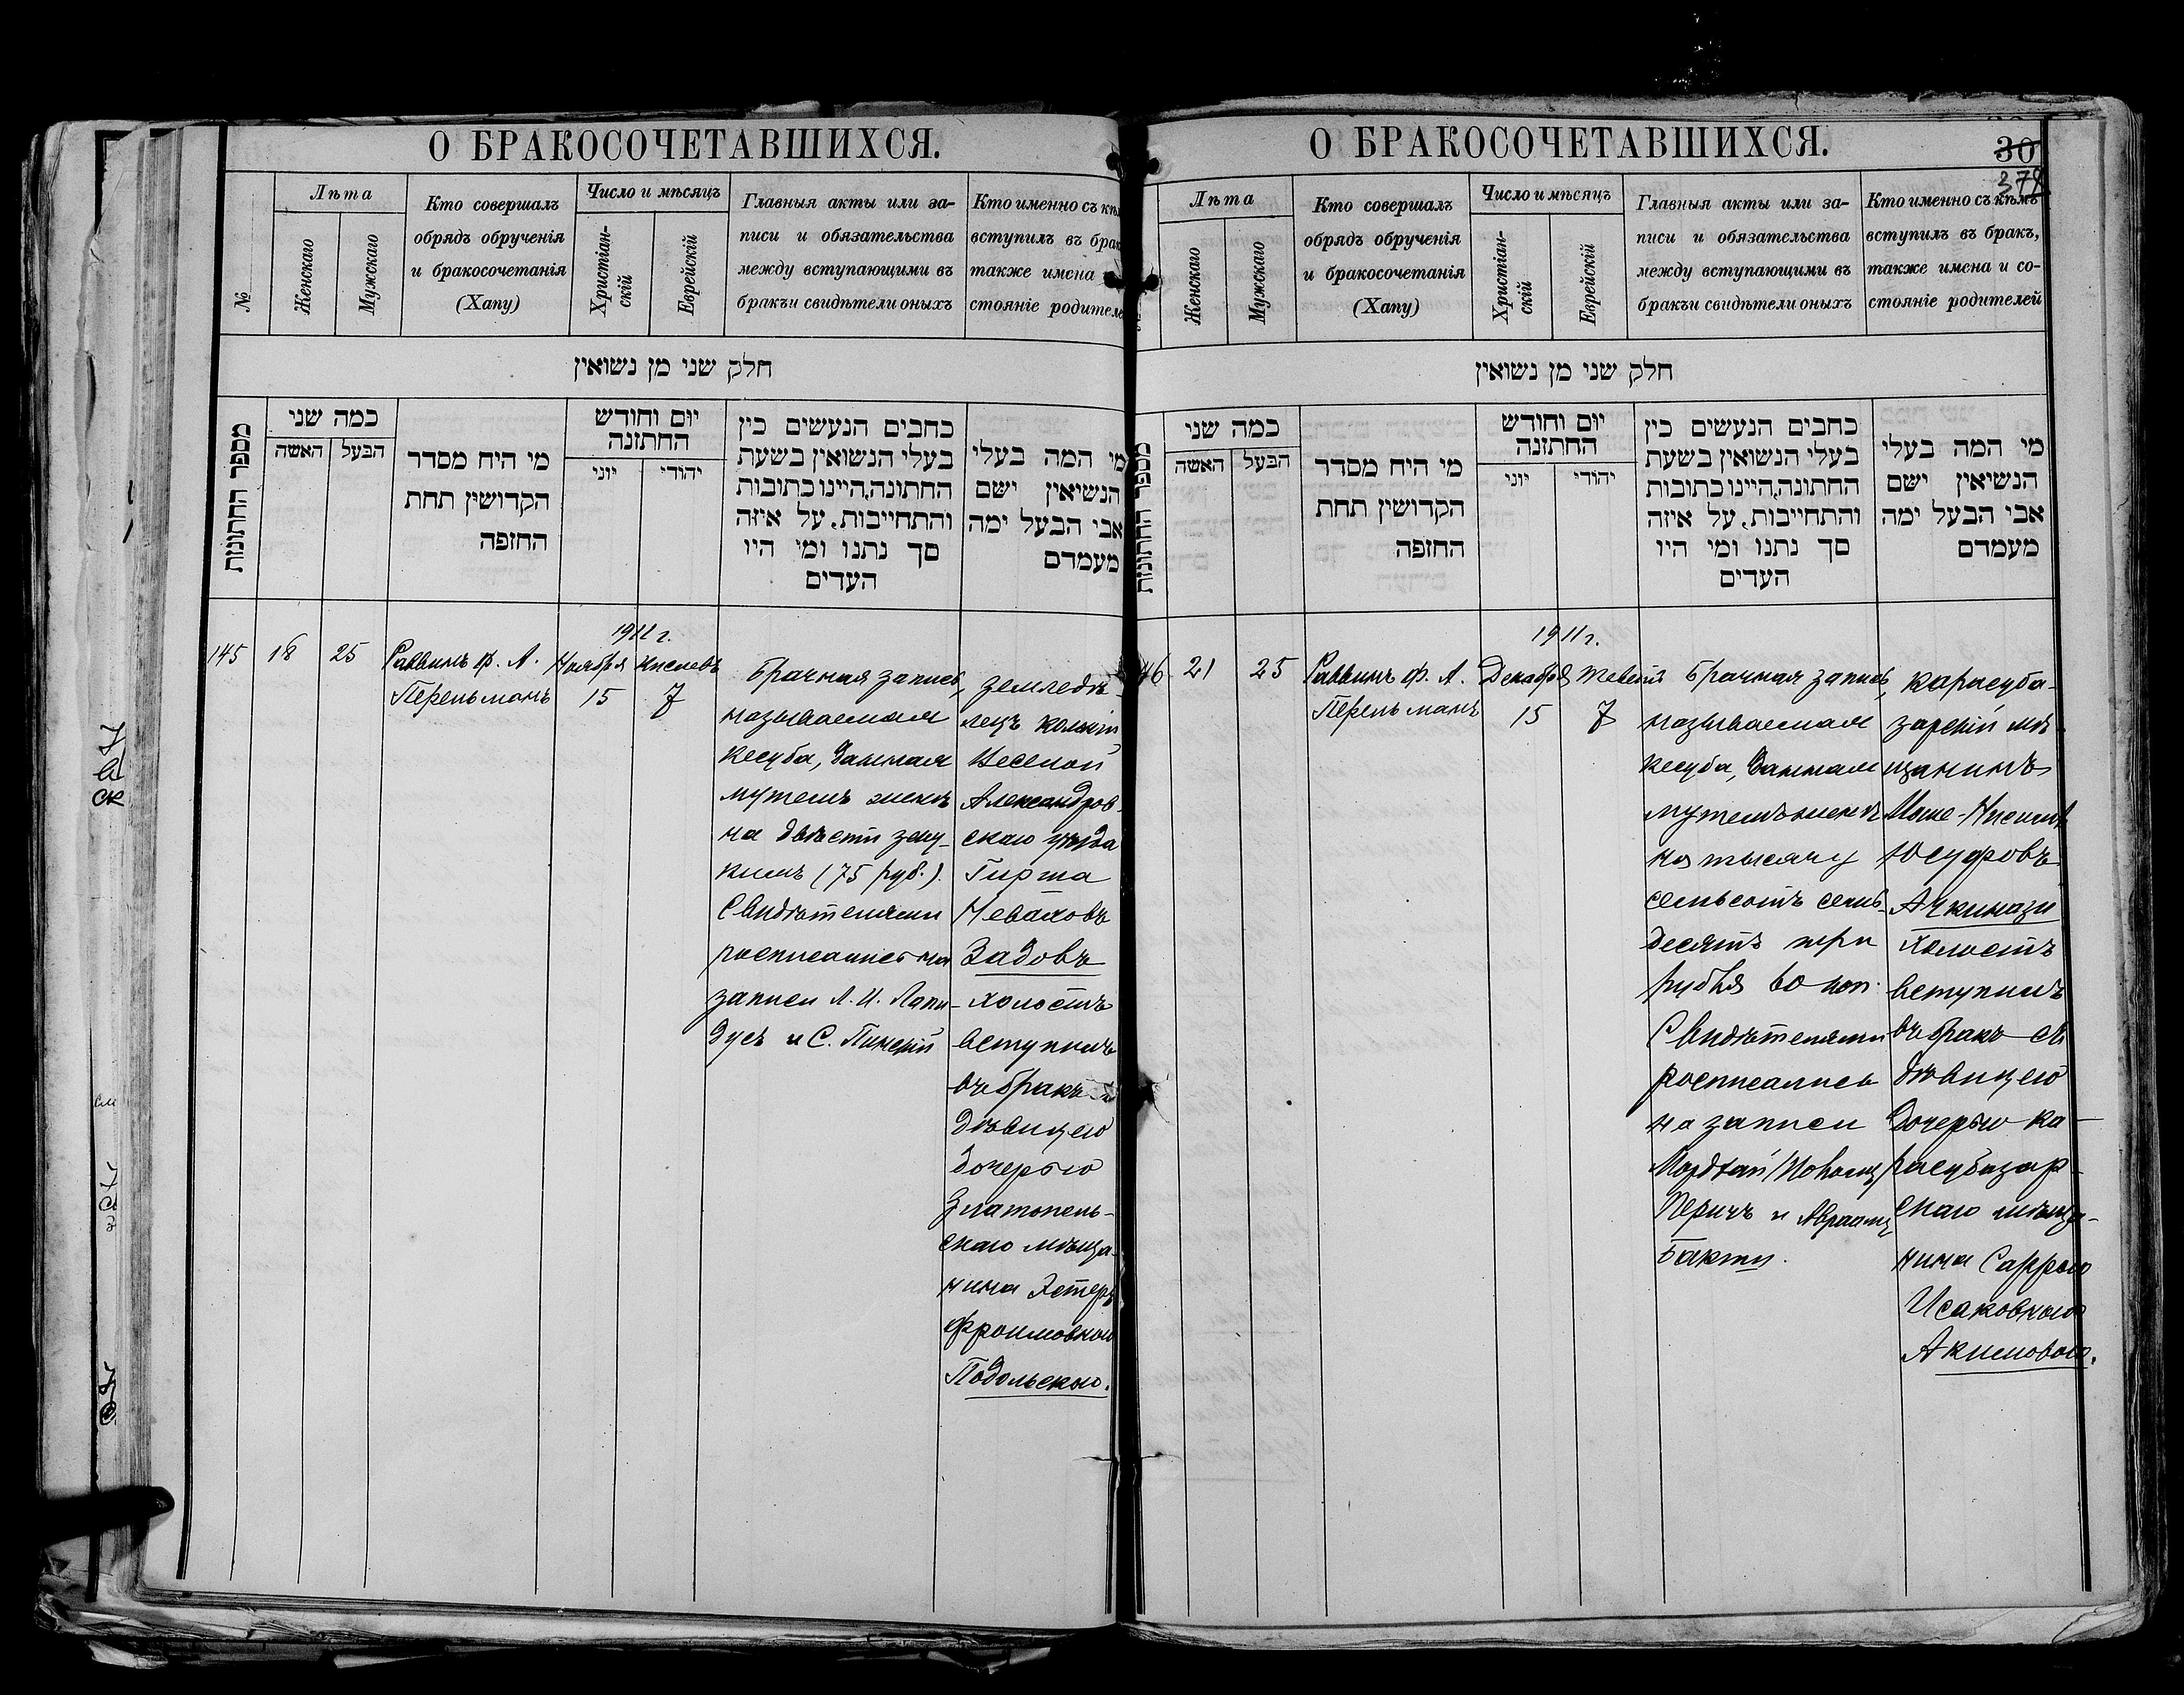 О БРАКОСОЧЕТАВШИХСЯ.
№
Лѣта
Женскаго
Мужскаго
Кто совершалъ
обрядъ обрученія
и бракосочетанія
(Хапу)
Число и мѣсяцъ
Христіан-
скій
Еврейскій
Главныя акты или за-
писи и обязательства
между вступающими въ
бракъ и свидѣтели оныхъ
Кто именно съ
вступилъ въ
также имена
стояніе
חלק שני מן נשואין
מספר החתונות
כמה שני
האשה
הבעל
מי היח מסדר
הקדושין תחת
החופה
יום וחודש
החתונה
יוני
יהודי
כתבים הנעשים בין
בעלי הנשואין בשעת
החתונה, היינו כתובות
והתחייבות. על איזה
סך נתנו ומי היו
העדים
מי המה בעלי
הנשיאין ישם
אבי הבעל ימה
מעמדם
145
18
25
Раввинъ Ф. А.
Перельманъ
1911 г.
Ноября
15
Кислевъ
7
Брачная запись,
называемая
кесуба, данная
мужемъ женѣ
на двѣсти злу-
кимъ (75 руб.).
Свидѣтелями
росписались на
записи Л. И. Лапи-
дусъ и С. Пинскій
земледѣ-
лецъ колоніи
Веселой
Александров-
скаго уѣзда
Гирша
Неваховъ
Задовъ
холостъ
вступилъ
въ бракъ
дѣвицею
дочерью
Златополь-
скаго мѣща-
нина Эстеръ
Фроимовною
Подольскою.
О БРАКОСОЧЕТАВШИХСЯ.
30
379
Лѣта
Женскаго
Мужскаго
Кто совершалъ
обрядъ обрученія
и бракосочетанія
(Хапу)
Число и мѣсяцъ
Христіан-
скій
Еврейскій
Главныя акты или за-
писи и обязательства
между вступающими въ
бракъ и свидѣтели оныхъ
Кто именно съ кѣмъ
вступилъ въ бракъ,
также имена и со-
стояніе родителей
חלק שני מן נשואין
מספר החתונות
כמה שני
האשה
הבעל
מי היח מסדר
הקדושין תחת
החופה
יום וחודש
החתונה
יוני
יהודי
כתבים הנעשים בין
בעלי הנשואין בשעת
החתונה, היינו כתובות
והתחייבות. על איזה
סך נתנו ומי היו
העדים
מי המה בעלי
הנשיאין ישם
אבי הבעל ימה
מעמדם
46
21
25
Раввинъ Ф. А.
Перельманъ
1911 г.
Декабря
15
Тевета
7
Брачная запись,
называемая
кесуба, данная
мужемъ женѣ
на тысячу
семьсотъ семь-
десятъ три
рубля 60 коп.
Свидѣтелями
росписались
на записи
Мордхай
Перичъ и Авраамъ
Бакши.
карасуба-
зарскій мѣ-
щанинъ
Моше-Нисимъ
Юсуфовъ
Ачкинази
холостъ
вступилъ
въ бракъ съ
дѣвицею
дочерью ка-
расубазар-
скаго мѣща-
нина Саррою
Исаковною
Акимовою.